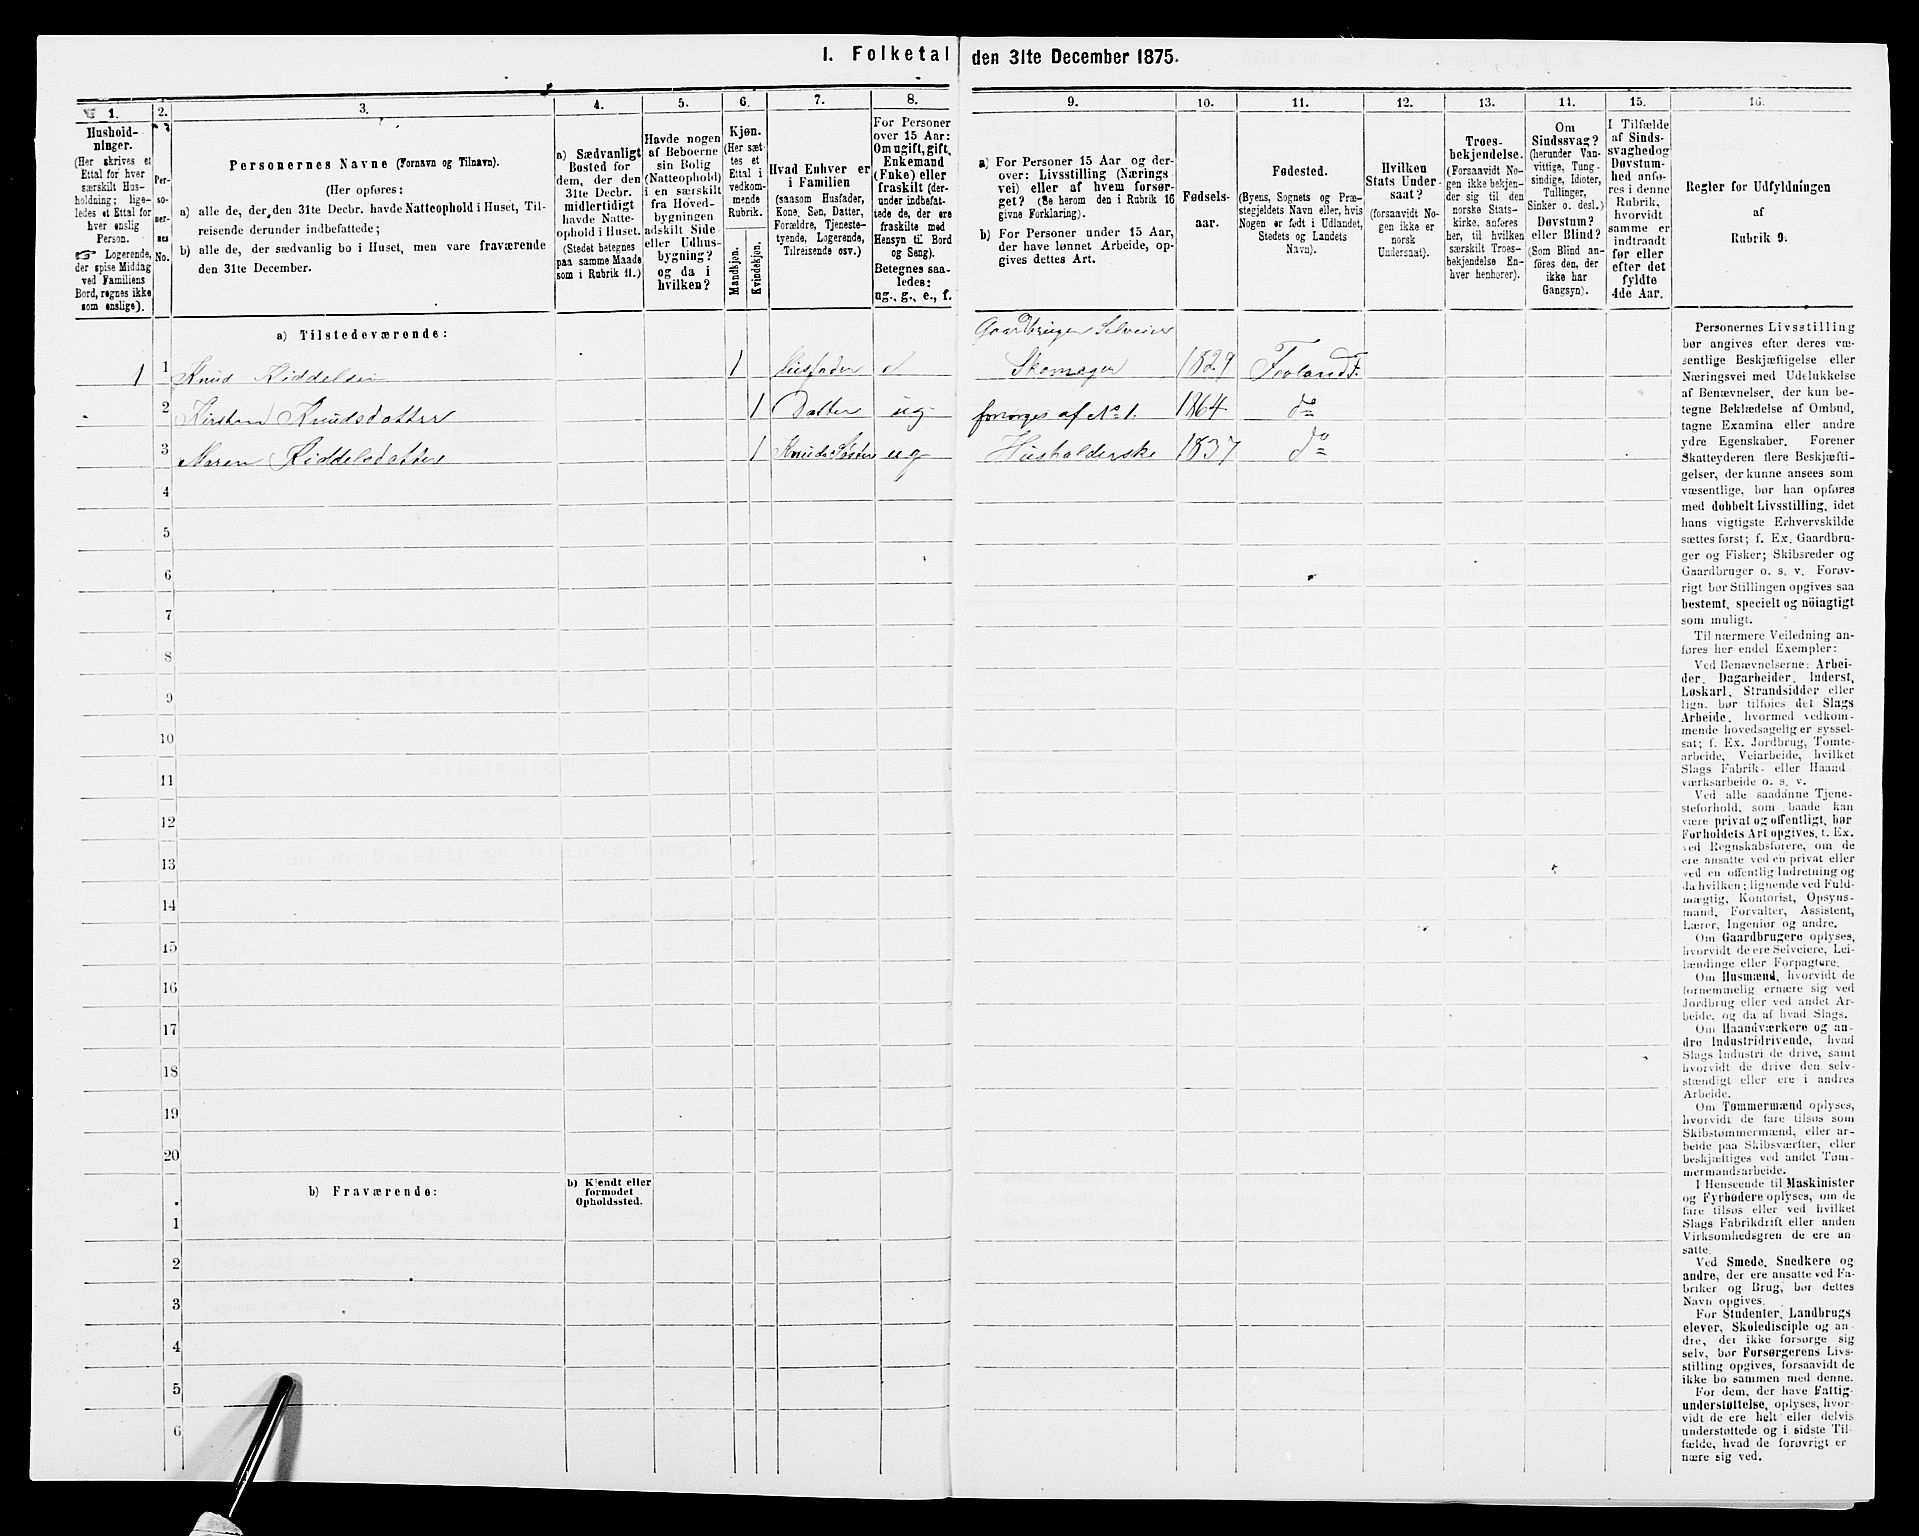 I. Folketal den 31te December 1875.
1. 2. 3. 4. 5. 6. 7. 8. 9. 10. 11. 12. 13. 14. 15. 16.
Hushold-
ninger.
(Her skrives et
Ettal for hver
særskilt Hus-
holdning; lige-
ledes et Ettal for
hver enslig
Person.
☞ Logerende,
der spise Middag
ved Familiens
Bord, regnes ikke
som enslige).
Per-
so-
ner-
nes
No.
Personernes Navne (Fornavn og Tilnavn).
(Her opføres:
a) alle de, der den 31te Decbr. havde Natteophold i Huset, Til-
reisende derunder indbefattede;
b) alle de, der sædvanlig bo i Huset, men vare fraværende
den 31te December.
a) Sædvanligt
Bosted for
dem, der den
31te Decbr.
midlertidigt
havde Natte-
ophold i Huset.
(Stedet betegnes
paa samme Maade
som i Rubrik 11.)
Havde nogen
af Beboerne
sin Bolig
(Natteophold)
i en særskilt
fra Hoved-
bygningen
adskilt Side-
eller Udhus-
bygning?
og da i
hvilken?
Kjøn.
(Her sæt-
tes et
Ettal i
vedkom-
mende
Rubrik.
Mandkjøn.
Kvindekjøn.
Hvad Enhver er
i Familien
(saasom Husfader,
Kone, Søn, Datter,
Forældre, Tjeneste-
tyende, Logerende,
Tilreisende osv.)
For Personer
over 15 Aar:
Om ugift, gift,
Enkemand
(Enke) eller
fraskilt (der-
under indbefat-
tede de, der ere
fraskilte med
Hensyn til Bord
og Seng).
Betegnes saa-
ledes:
ug., g., e., f.
a) For Personer 15 Aar og der-
over: Livsstilling (Nærings-
vei) eller af hvem forsør-
get? (Se herom den i Rubrik 16
givne Forklaring).
b) For Personer under 15 Aar,
der have lønnet Arbeide, op-
gives dettes Art.
Fødsels-
aar.
Fødested.
(Byens, Sognets og Præ-
stegjeldets Navn eller, hvis
Nogen er født i Udlandet,
Stedets og Landets
Navn).
Hvilken
Stats Under-
saat?
(forsaavidt No-
gen ikke er
norsk
Undersaat).
Troes-
bekjendelse.
(Forsaavidt No-
gen ikke bekjen-
der sig til den
norske Stats-
kirke, anføres
her, til hvilken
særskilt Troes-
bekjendelse En-
hver henhører).
Om
Sindssvag?
(herunder Van-
vittige, Tung-
sindige, Idioter,
Tullinger,
Sinker o. desl.)
Døvstum?
eller Blind?
(Som Blind an-
føres den, der
ikke har
Gangsyn).
I Tilfælde
af Sinds-
svaghed og
Døvstum-
hed anfø-
res i denne
Rubrik,
hvorvidt
samme er
indtraadt
før eller
efter det
fyldte
4de Aar.
Regler for Udfyldningen
af
Rubrik 9.
a) Tilstedeværende:
Gaardbruger Selveier
1 1 Knud Kiddelsen 1 Husfader e Skomager 1829 Froland F.
2 Kirsten Knudsdatter 1 Datter ug forsørges af No 1. 1864 do
3 Maren Kiddelsdatter 1 Knuds Søster ug Husholderske 1837 do
4
5
6
7
8
9
10
11
12
13
14
15
16
17
18
19
20
b) Fraværende:
b) Kjendt eller
formodet
Opholdssted.
1
2
3
4
5
6
Personernes Livsstilling
bør angives efter deres væ-
sentlige Beskjæftigelse eller
Næringsvei med Udelukkelse
af Benævnelser, der kun be-
tegne Beklædelse af Ombud,
tagne Examina eller andre
ydre Egenskaber. Forener
Skatteyderen flere Beskjæfti-
gelser, der kunne ansees som
væsentlige, bør han opføres
med dobbelt Livsstilling, idet
hans vigtigste Erhvervskilde
sættes først; f. Ex. Gaardbru-
ger og Fisker; Skibsreder og
Gaardbruger o. s. v. Forøv-
rigt bør Stillingen opgives saa
bestemt, specielt og nöiagtigt
som muligt.
Til nærmere Veiledning an-
føres her endel Exempler:
Ved Benævnelserne: Arbei-
der, Dagarbeider, Inderst,
Løskarl, Strandsidder eller
lign. bør tilføies det Slags
Arbeide, hvormed vedkom-
mende hovedsagelig er syssel-
sat; f. Ex. Jordbrug, Tomte-
arbeide, Veiarbeide, hvilket
Slags Fabrik- eller Haand-
værksarbeide o. s. v.
Ved alle saadanne Tjene-
steforhold, som baade kan
være privat og offentligt, bør
Forholdets Art opgives, t. Ex.
ved Regnskabsførere, om de
ere ansatte ved en privat eller
ved en offentlig Indretning og
da hvilken; lignende ved Fuld-
mægtig, Kontorist, Opsyns-
mand, Forvalter, Assistent,
Lærer, Ingeniør og andre.
Om Gaardbrugere oplyses,
hvorvidt de ere Selveiere, Lei-
lændinge eller Forpagtere.
Om Husmænd, hvorvidt de
fornemmelig ernære sig ved
Jordbrug eller ved andet Ar-
beide, og da af hvad Slags.
Om Haandværkere og an-
dre Industridrivende, hvad
Slags Industri de drive, samt
hvorvidt de drive den selv-
stændigt eller ere i andres
Arbeide.
Om Tømmermænd oplyses,
hvorvidt de fare tilsøs som
Skibstømmermænd, eller ar-
beide paa Skibsværfter, eller
beskjæftiges ved andet Tøm-
mermandsarbeide.
I Henseende til Maskinister
og Fyrbødere oplyses, om de
fare tilsøs eller ved hvilket
Slags Fabrikdrift eller anden
Virksomhedsgren de ere an-
satte.
Ved Smede, Snedkere og
andre, der ere ansatte ved Fa-
briker og Brug, bør dettes
Navn opgives.
For Studenter, Landbrugs-
elever, Skoledisciple og an-
dre, der ikke forsørge sig
selv, bør Forsørgerens Livs-
stilling opgives, forsaavidt de
ikke bo sammen med denne.
For dem, der have Fattig-
understøttelse, oplyses, hvor-
vidt de ere helt eller delvis
understøttede og i sidste Til-
fælde, hvad de forøvrigt er-
nære sig ved.